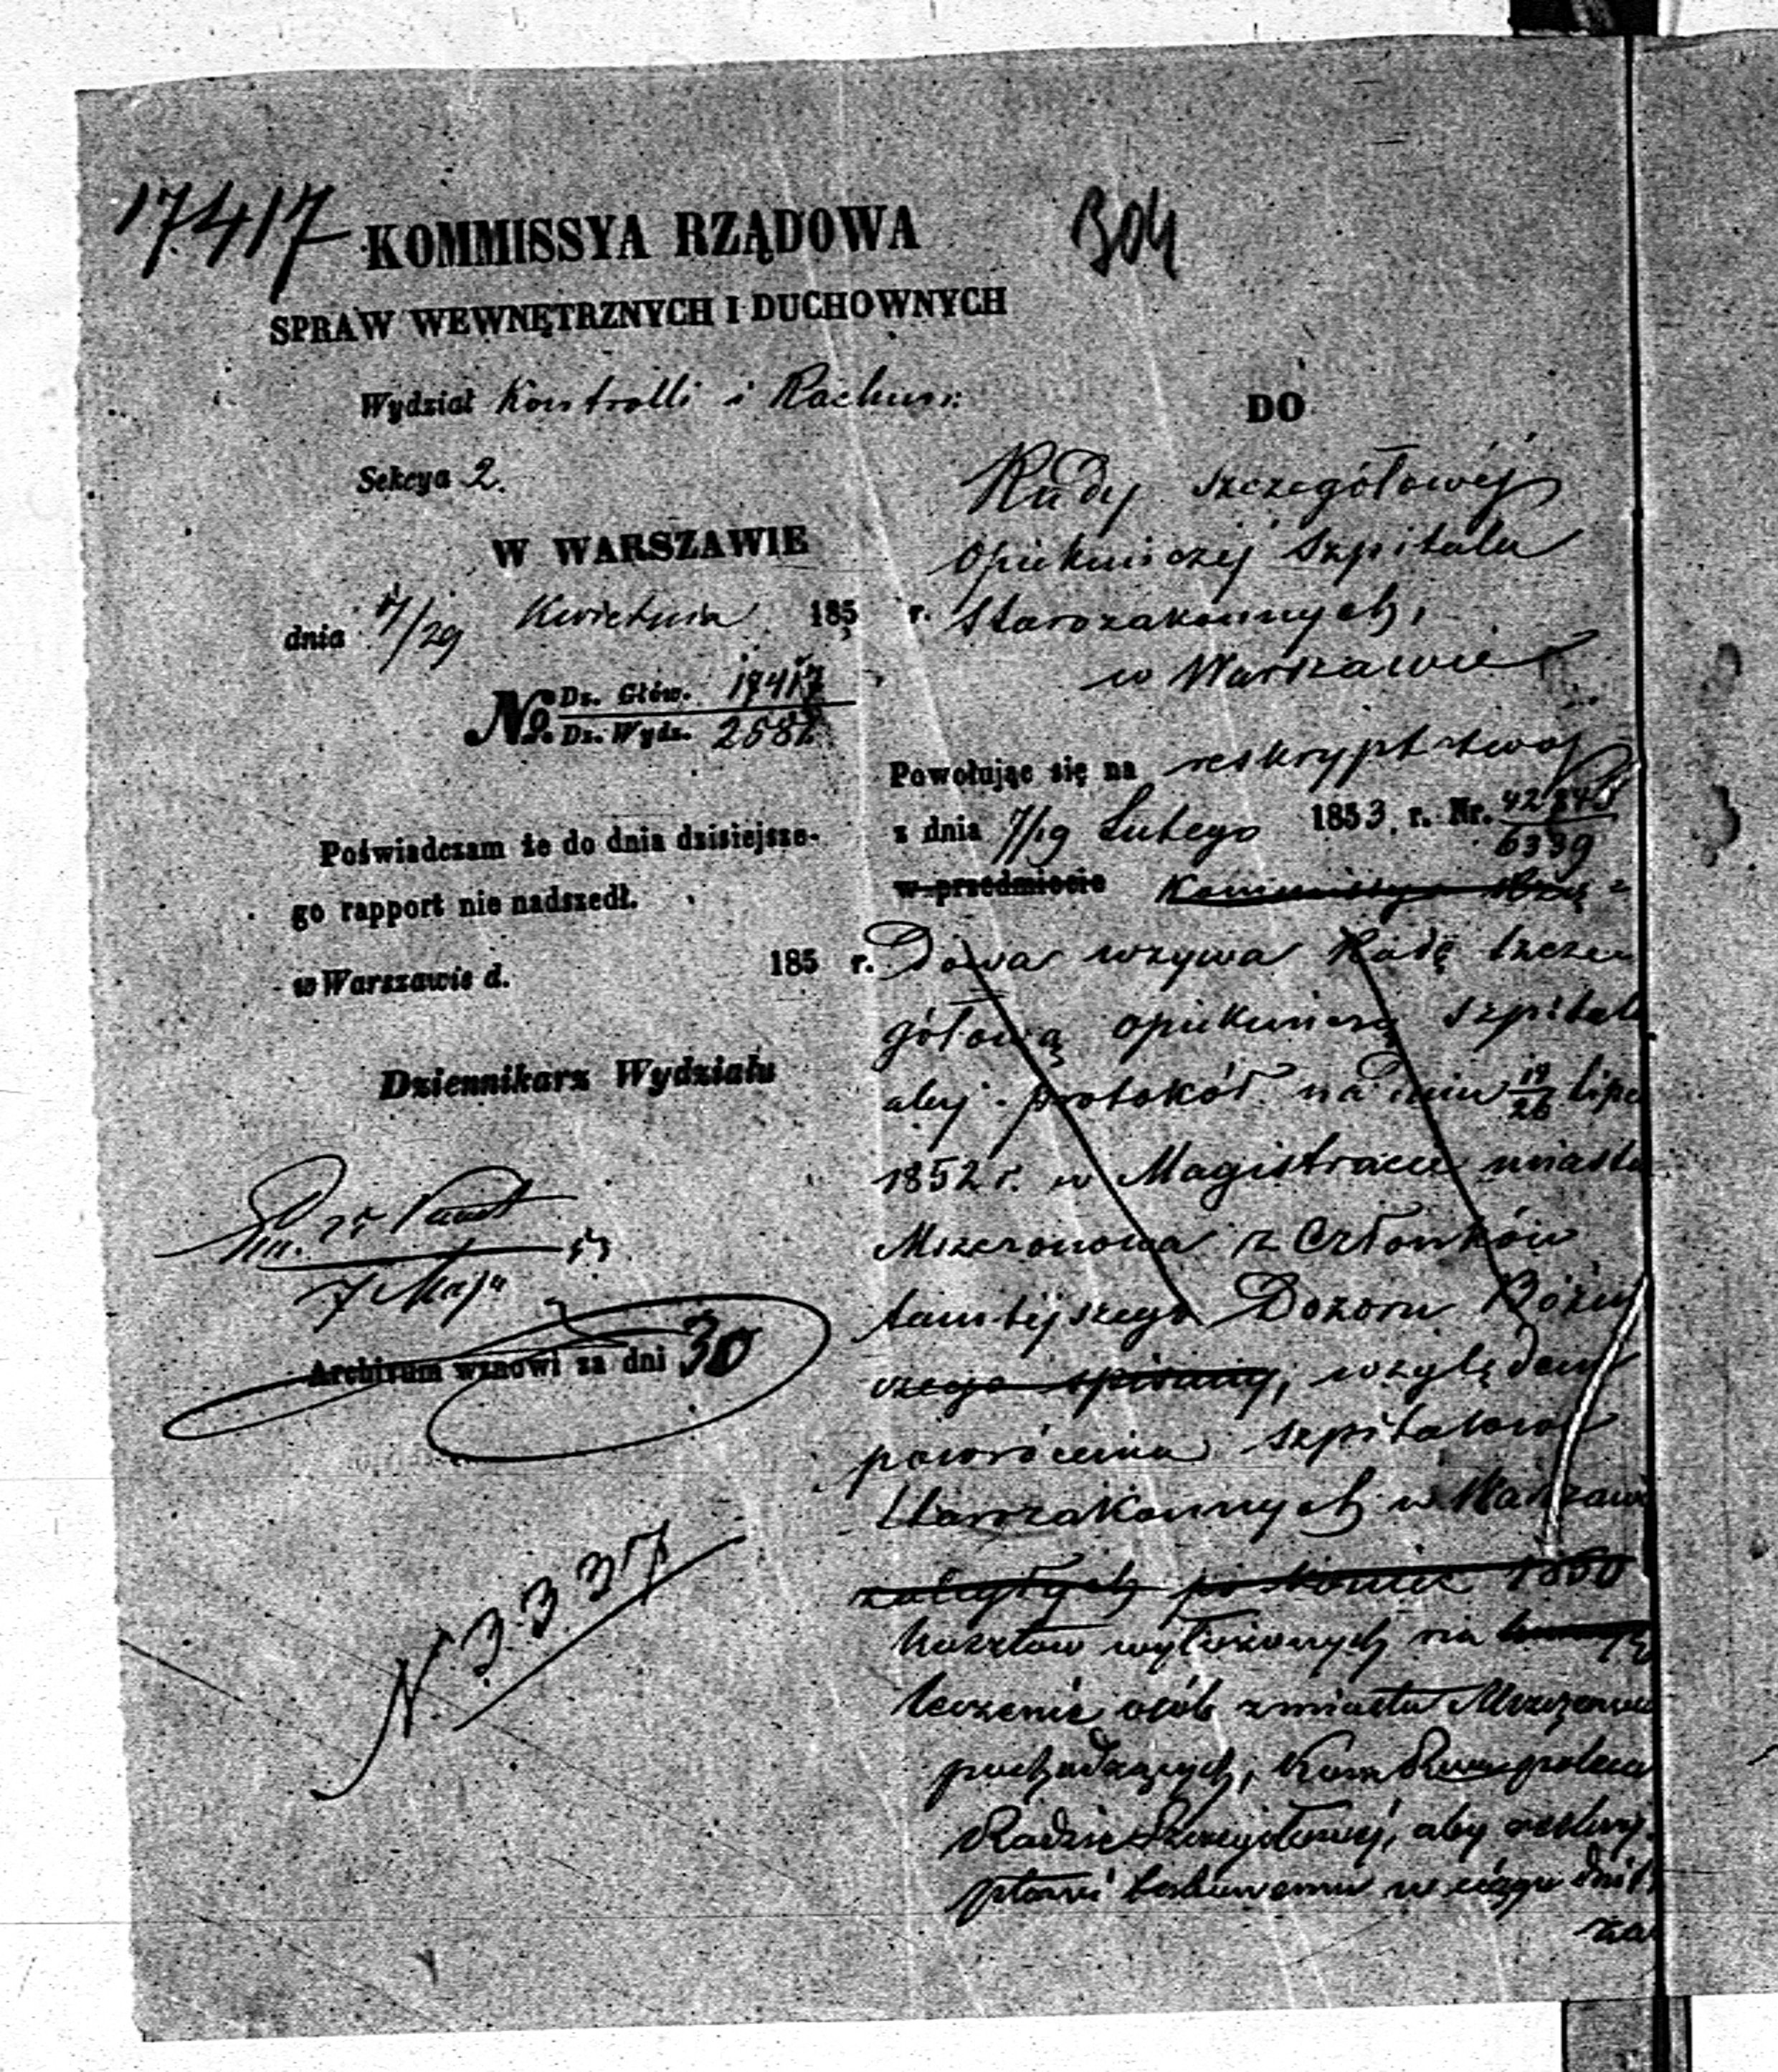 17417
304
KOMMISSYA RZĄDOWA
SPRAW WEWNĘTRZNYCH I DUCHOWNYCH
Wydział Kontrolli i Rachun:
Sekcya 2.
W WARSZAWIE
dnia /29 Kwietnia 185 r.
No. Dz. Głów. 17417
Dz. Wydz. 2582
Poświadczam że do dnia dzisiejsze-
go rapport nie nadszedł.
w Warszawie d. 185 r.
Dziennikarz Wydziału
7 Maja 53
Archivum wznowi za dni 30
N 3337
DO
Rady szczegółowéj
Opiekuńczéj Szpitala
Starozakonnych,
w Warszawie
Powołując się na reskrypt swój
z dnia 7/19 Lutego 1853. r. Nr.
6339
w przedmiocie Kommissya Rzą-
Dowa wzywa Radę szcze-
gółową opiekuńczą szpitala
aby protokół na dniu 26 Lipca
1852 r. w Magistracie miasta
Mszczonowa z Członków
tamtéjszego Dozoru Bóżni
czego spisany, względem
powrócenia szpitalowi
Starozakonnych w Warszawie
zaległych po koniec 1850
kosztów wyłożonych na
leczenie osób z miasta Mszczonowa
pochodzących, Kom. Rząd. poleca
Radzie Szczegółowéj, aby reskry-
ptowi temu w ciągu dni
za